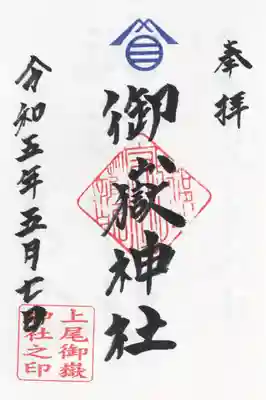 奉拝
御嶽神社
令和五年五月七日
上尾御嶽
神社之印